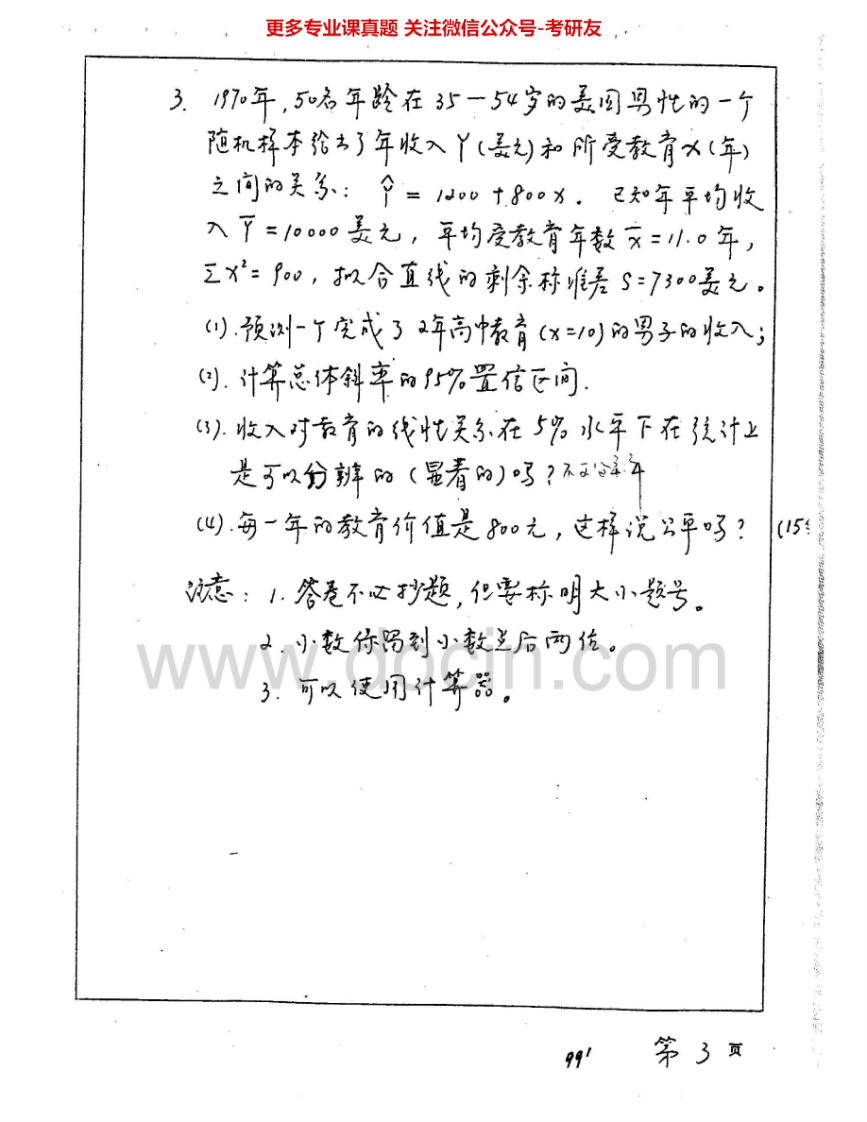 更多专业课真题 关注微信公众号-考研友
3. 1970年,50名年龄在35-54岁的美国男性的一个
随机样本给出了年收入Y(美元)和所受教育x(年)
之间的关系: Ŷ = 1200 + 800x. 已知年平均收
入Ȳ=10000美元, 平均受教育年数x̄=11.0年,
Σx²=900, 拟合直线的剩余标准差S=7300美元。
(1). 预测一个完成了2年高中教育(x=10)的男子的收入;
(2). 计算总体斜率的95%置信区间.
(3). 收入对教育的线性关系在5%水平下在统计上
是可以分辨的(显著的)吗?
(4). 每一年的教育价值是800元, 这样说公平吗? (15
注意: 1. 答卷不必抄题, 但要标明大小题号。
2. 小数保留到小数点后两位。
3. 可以使用计算器。
www.docin.com
99' 第3页